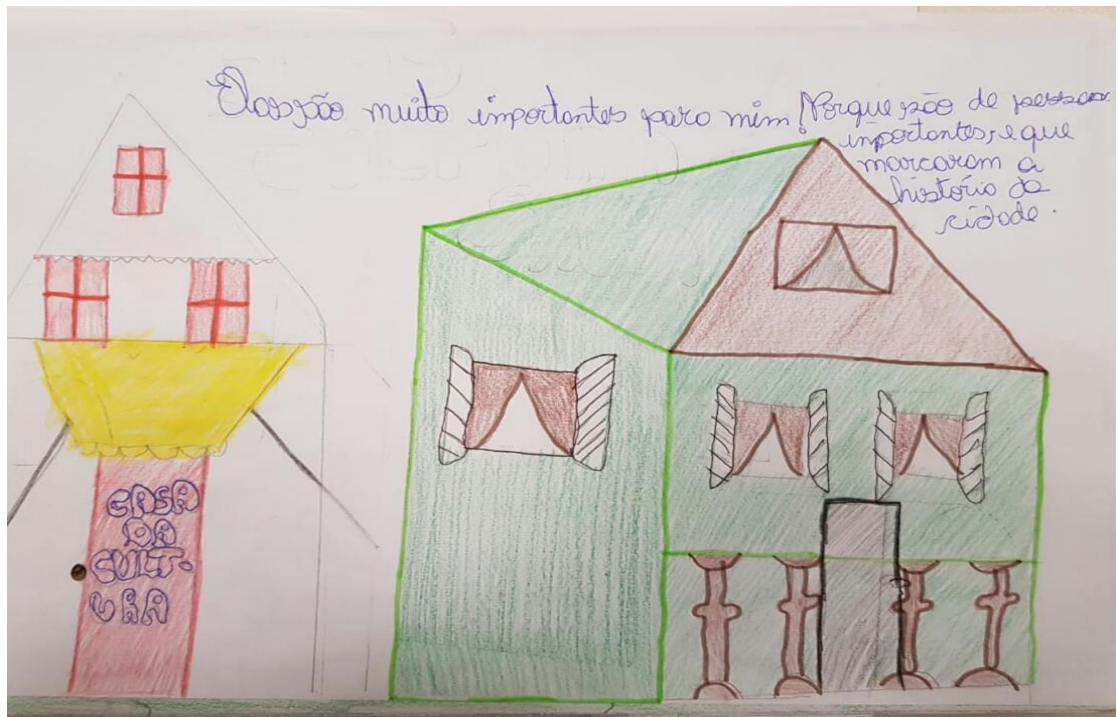 Elas são muito importantes para mim! Porque são de pessoas
importantes, e que
marcaram a
história da
cidade.
CASA
DA
CULT-
URA